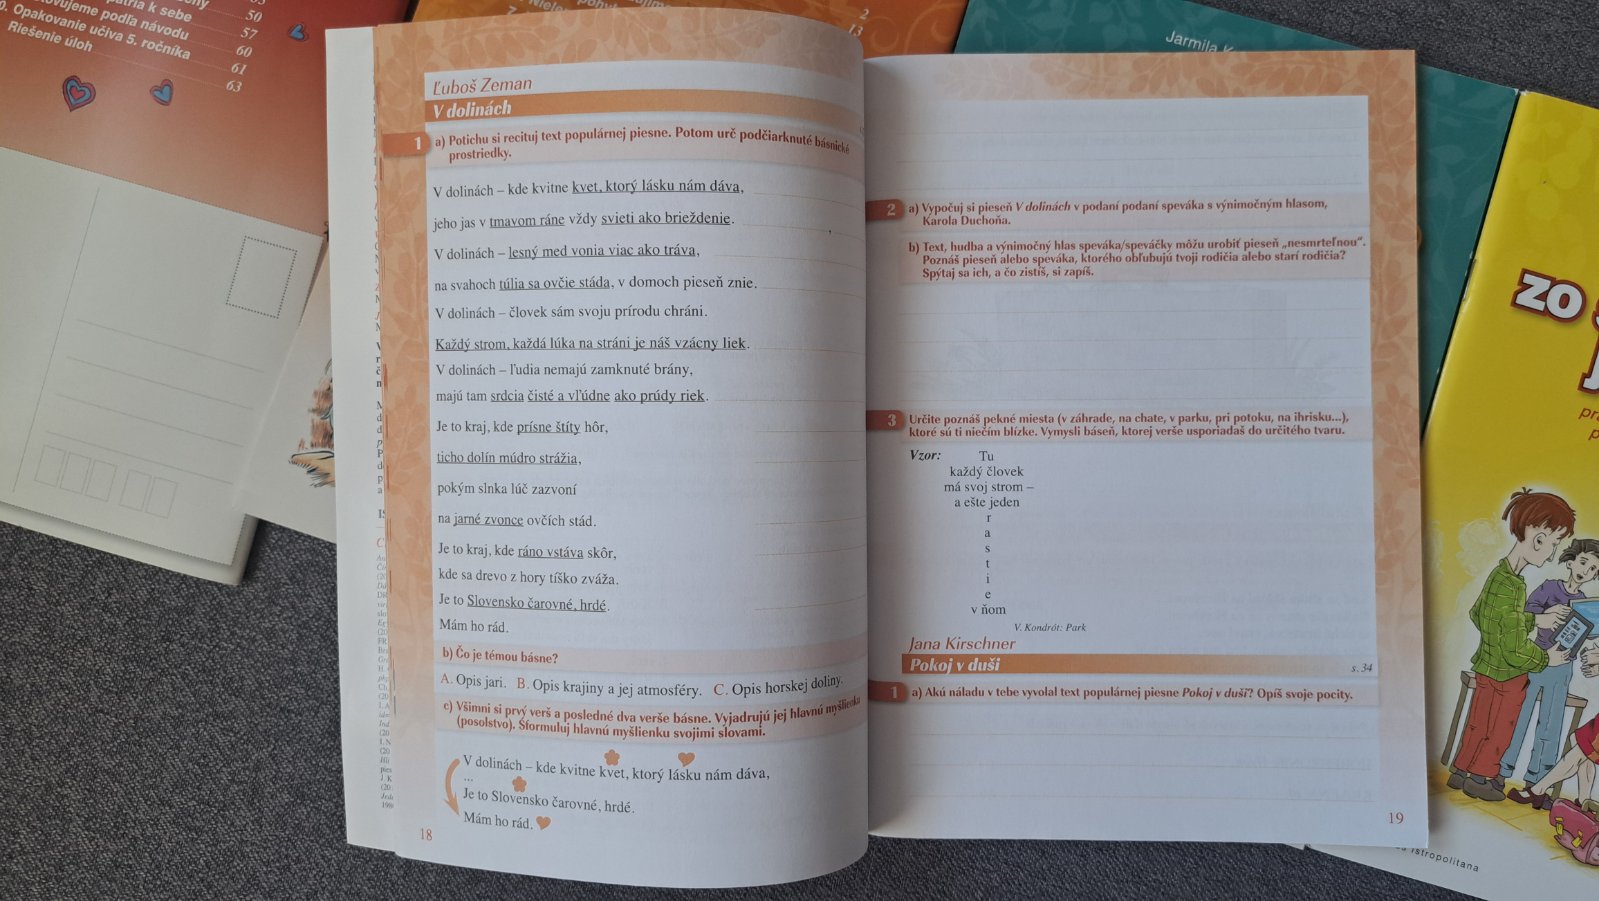 patria k sebe
50
ujeme podľa návodu
57
0. Opakovanie učiva 5. ročníka
60
Riešenie úloh
61
63
2
13
Jarmila K
Ľuboš Zeman
V dolinách
1 a) Potichu si recituj text populárnej piesne. Potom urč podčiarknuté básnické
prostriedky.
V dolinách – kde kvitne kvet, ktorý lásku nám dáva,
jeho jas v tmavom ráne vždy svieti ako brieždenie.
V dolinách – lesný med vonia viac ako tráva,
na svahoch túlia sa ovčie stáda, v domoch pieseň znie.
V dolinách – človek sám svoju prírodu chráni.
Každý strom, každá lúka na stráni je náš vzácny liek.
V dolinách – ľudia nemajú zamknuté brány,
majú tam srdcia čisté a vľúdne ako prúdy riek.
Je to kraj, kde prísne štíty hôr,
ticho dolín múdro strážia,
pokým slnka lúč zazvoní
na jarné zvonce ovčích stád.
Je to kraj, kde ráno vstáva skôr,
kde sa drevo z hory tíško zváža.
Je to Slovensko čarovné, hrdé.
Mám ho rád.
b) Čo je témou básne?
A. Opis jari. B. Opis krajiny a jej atmosféry. C. Opis horskej doliny.
c) Všimni si prvý verš a posledné dva verše básne. Vyjadrujú jej hlavnú myšlienku
(posolstvo). Sformuluj hlavnú myšlienku svojimi slovami.
V dolinách – kde kvitne kvet, ktorý lásku nám dáva,
...
Je to Slovensko čarovné, hrdé.
Mám ho rád.
18
2 a) Vypočuj si pieseň V dolinách v podaní podaní speváka s výnimočným hlasom,
Karola Duchoňa.
b) Text, hudba a výnimočný hlas speváka/speváčky môžu urobiť pieseň „nesmrteľnou“.
Poznáš pieseň alebo speváka, ktorého obľubujú tvoji rodičia alebo starí rodičia?
Spýtaj sa ich, a čo zistíš, si zapíš.
3 Určite poznáš pekné miesta (v záhrade, na chate, v parku, pri potoku, na ihrisku...),
ktoré sú ti niečím blízke. Vymysli báseň, ktorej verše usporiadaš do určitého tvaru.
Vzor: Tu
každý človek
má svoj strom –
a ešte jeden
r
a
s
t
i
e
v ňom
V. Kondrót: Park
Jana Kirschner
Pokoj v duši
s. 34
1 a) Akú náladu v tebe vyvolal text populárnej piesne Pokoj v duši? Opíš svoje pocity.
19
zo
istropolitana